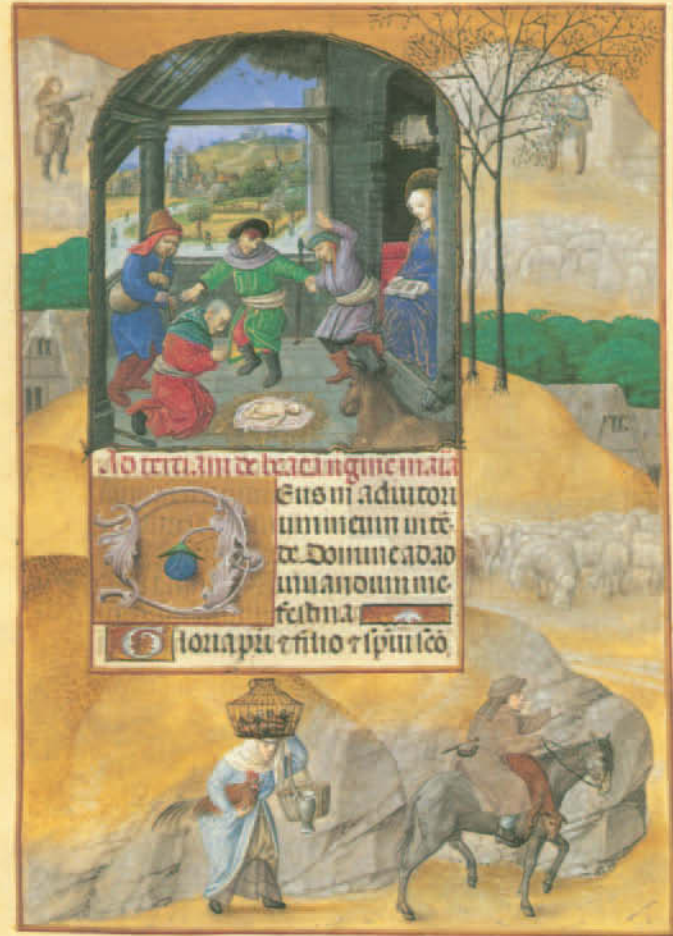 Ad tertiam de beata ūgine maria
Eus in adiutori
um meum intē
de Domine ad ad
iuuandum me
festina
Gloria pri ⁊ filio ⁊ spiui sco